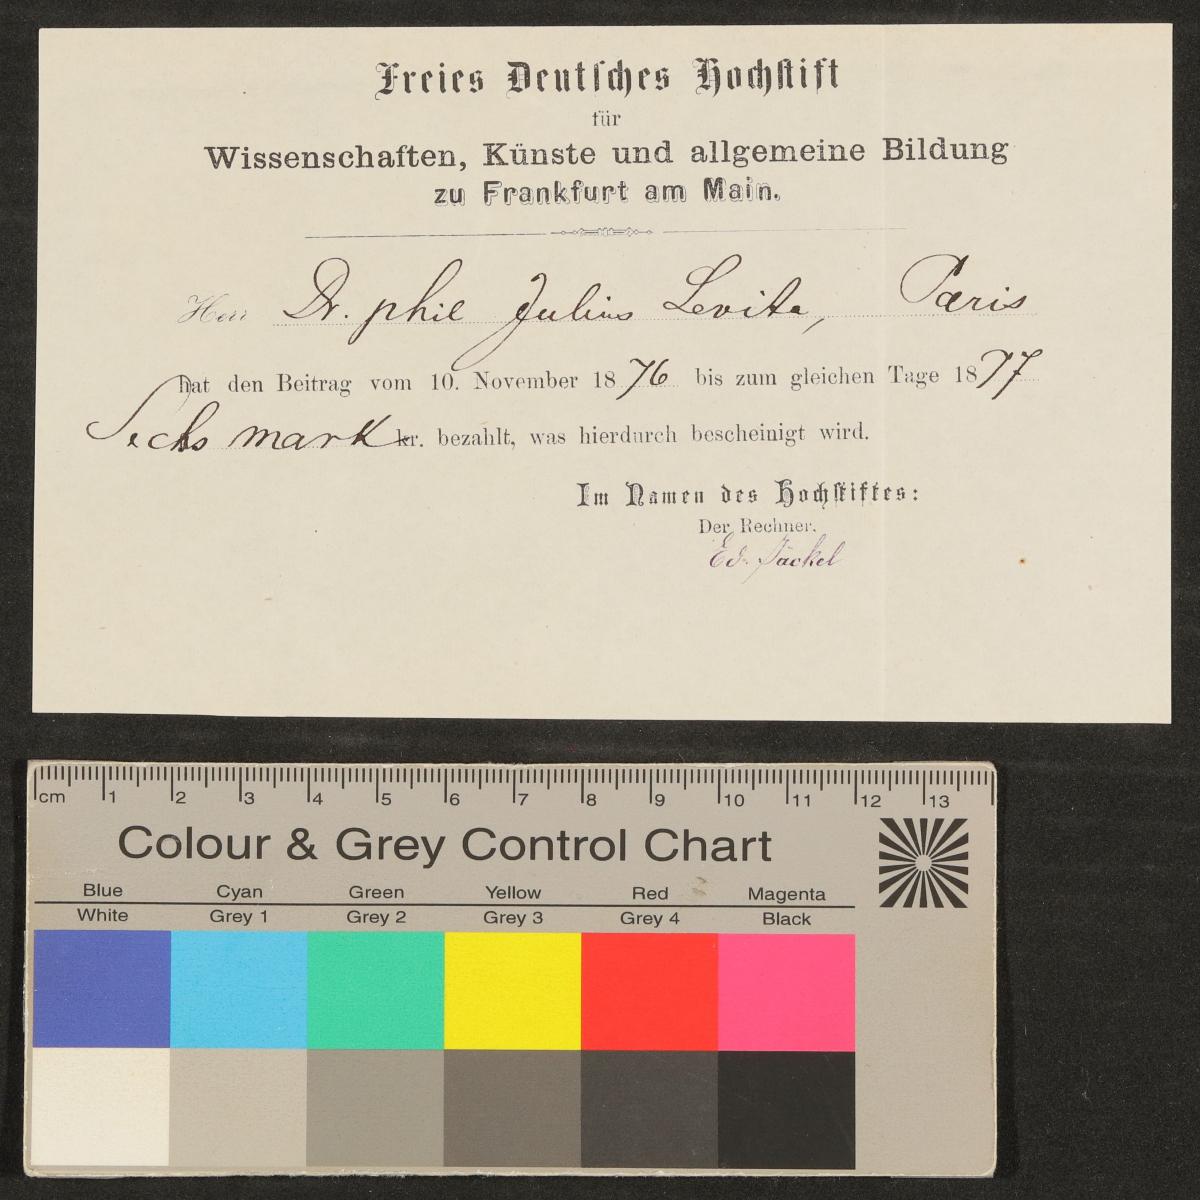 Freies Deutsches Hochstift
für
Wissenschaften, Künste und allgemeine Bildung
zu Frankfurt am Main.
Herr Dr. phil Julius Levita, Paris
hat den Beitrag vom 10. November 1876 bis zum gleichen Tage 1877
Sechs mark kr. bezahlt, was hierdurch bescheinigt wird.
Im Namen des Hochstiftes:
Der Rechner.
Ed. Jäckel
cm 1 2 3 4 5 6 7 8 9 10 11 12 13
Colour & Grey Control Chart
Blue Cyan Green Yellow Red Magenta
White Grey 1 Grey 2 Grey 3 Grey 4 Black